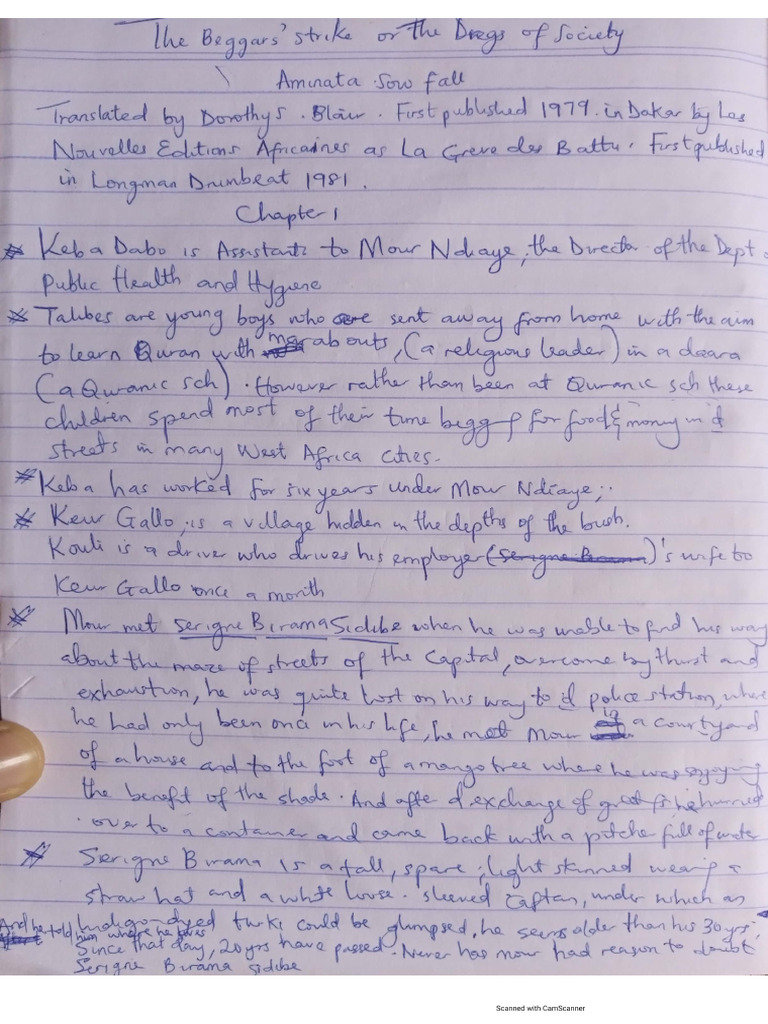 The Beggars' strike or the Dregs of Society
Aminata Sow fall
Translated by Dorothy S. Blair. First published 1979. in Dakar by Les
Nouvelles Editions Africaines as La Greve des Battu. First published
in Longman Drumbeat 1981.
Chapter 1
* Keba Dabo is Assistant to Mour Ndiaye, the Director of the Dept
Public Health and Hygiene
* Talibes are young boys who are sent away from home with the aim
to learn Quran with marabouts, (a religious leader) in a daara
(a Quranic sch). However rather than been at Quranic sch these
children spend most of their time begg for food & money in d
streets in many West Africa cities.
* Keba has worked for six years under Mour Ndiaye,.
* Keur Gallo, is a village hidden in the depths of the bush.
Kouli is a driver who drives his employer (Serigne Birama)'s wife to
Keur Gallo once a month
* Mour met Serigne Birama Sidibe when he was unable to find his way
about the maze of streets of the Capital, overcome by thirst and
exhaustion, he was quite lost on his way to d police station, where
he had only been once in his life, he met Mour in a courtyard
of a house and to the foot of a mango tree where he was enjoying
the benefit of the shade. And after d exchange of he hurried
over to a container and came back with a pitcher full of water
* Serigne Birama is a tall, spare, light skinned wearing a
straw hat and a white loose. sleeved captan, under which an
indigo-dyed turki could be glimpsed, he seems older than his 30yrs,
And he told him where he lives
Since that day, 20yrs have passed. Never has mour had reason to doubt
Serigne Birama Sidibe
Scanned with CamScanner